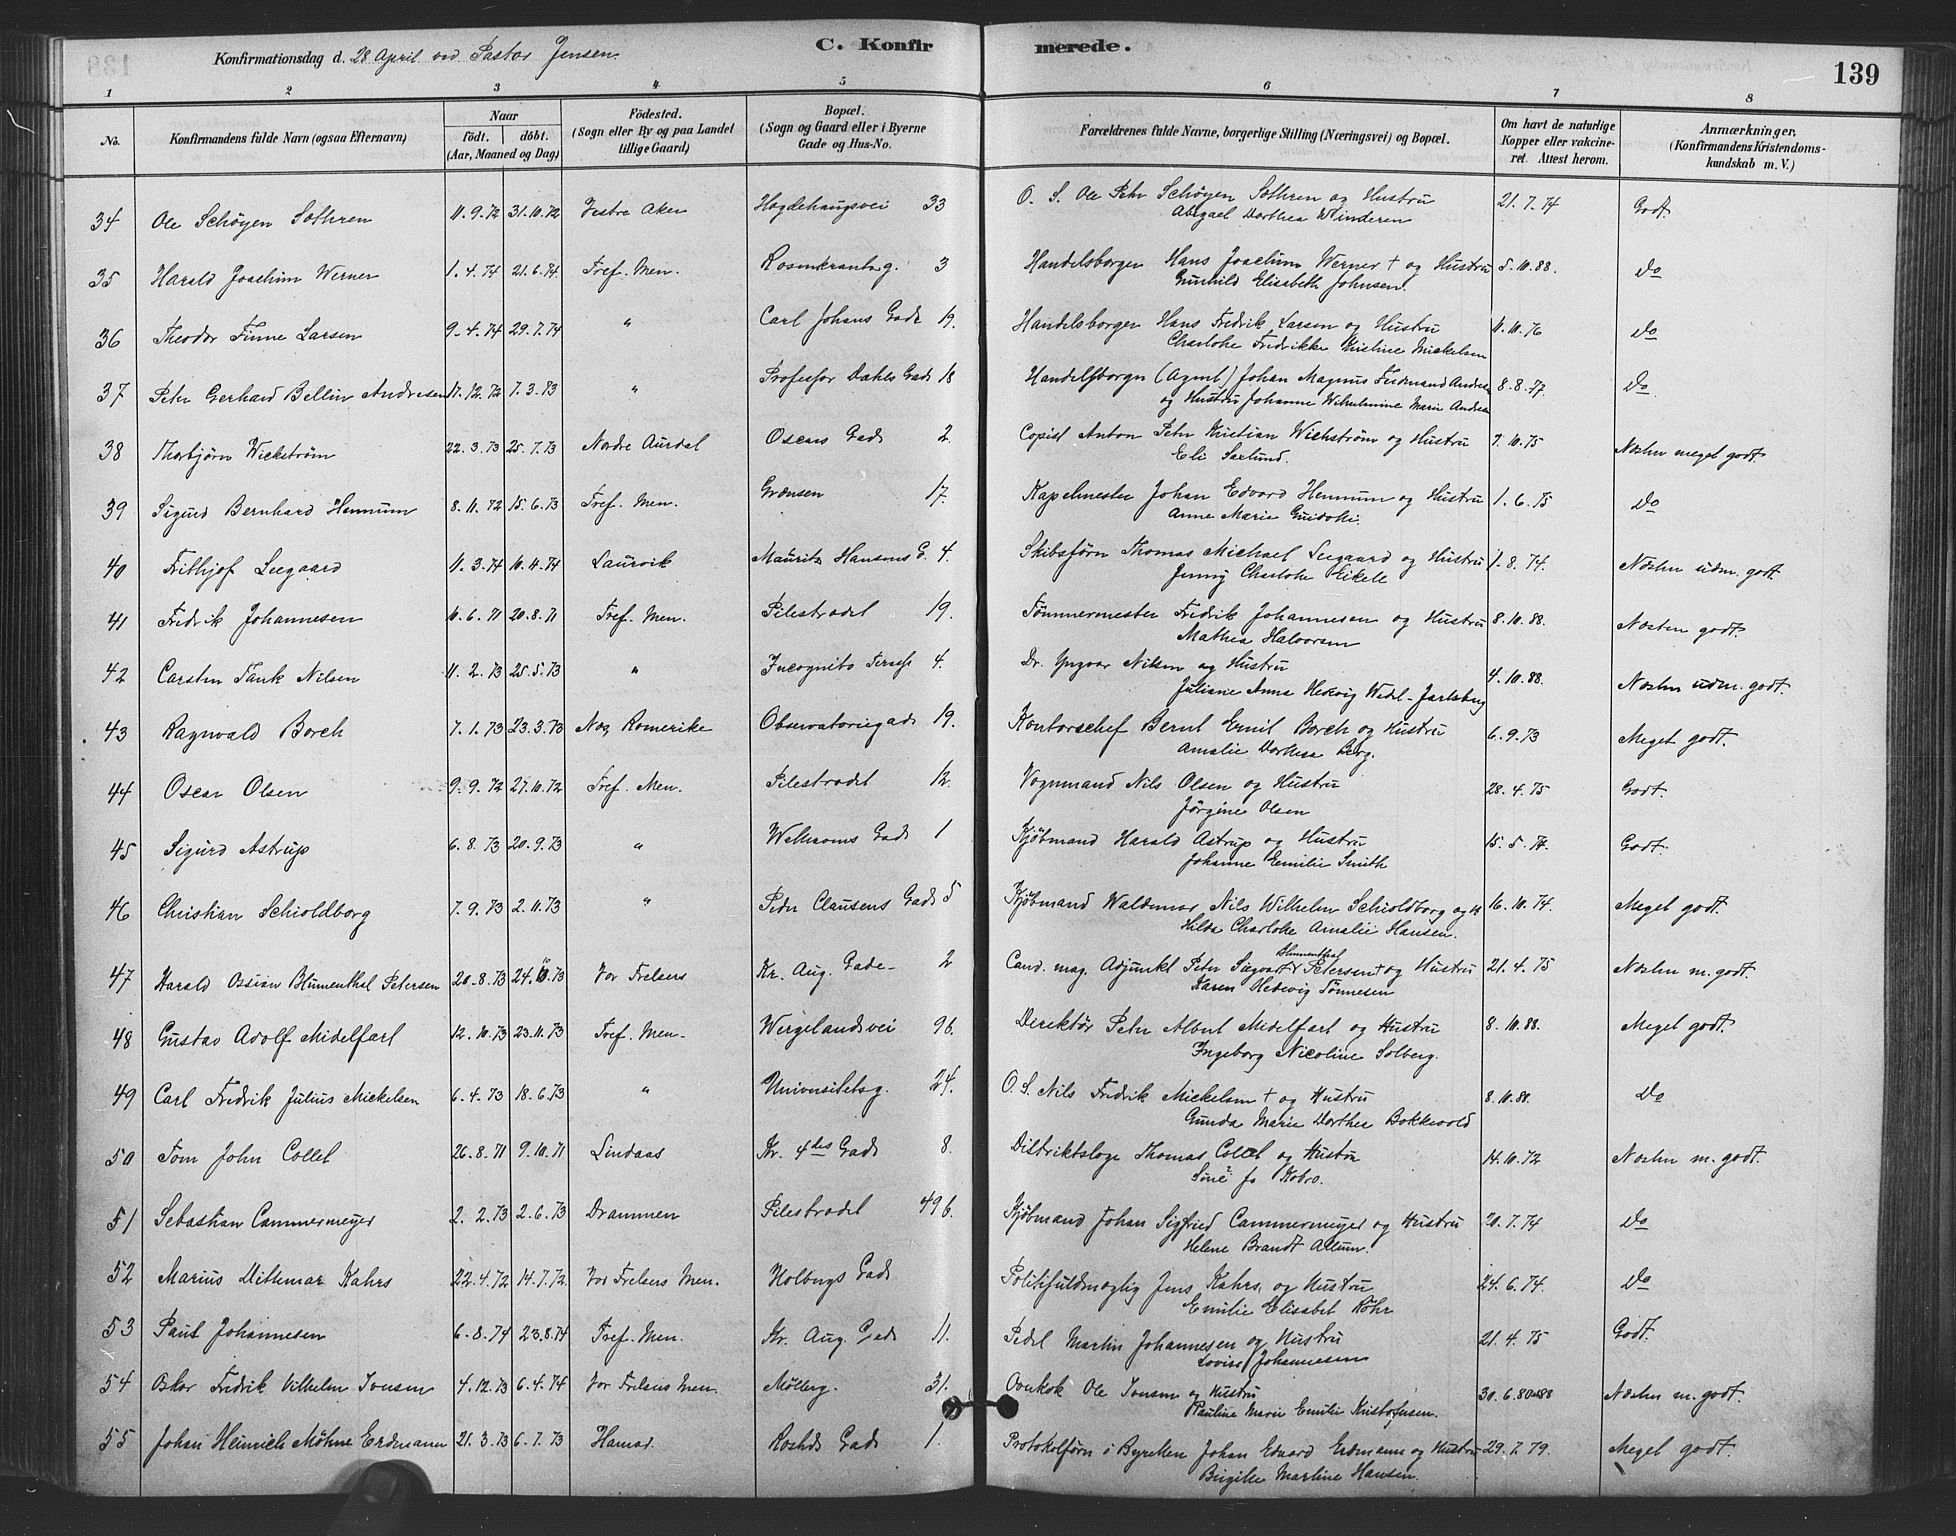 Konfirmationsdag d. 28 April ved Pastor Jensen.
C. Konfirmerede.
139
1 2 3 4 5 6 7 8
No. Konfirmandens fulde Navn (ogsaa Efternavn) Naar födt. döbt. (Aar, Maaned og Dag) Födested. (Sogn eller By og paa Landet tillige Gaard) Bopæl. (Sogn og Gaard eller i Byerne Gade og Hus-No. Forældrenes fulde Navne, borgerlige Stilling (Næringsvei) og Bopæl. Om havt de naturlige Kopper eller vakcineret. Attest herom. Anmærkninger, (Konfirmandens Kristendomskundskab m. V.)
34 Ole Schöyen Sothren 11.9.72 31.10.72 Vestre Aker Hegdehaugsvei 33 O. S. Ole Petr Schöyen Sothren og Hustru 21.7.74 Godt.
Abigael Dorthea Winderen
35 Harald Joachim Werner 1.4.74 21.6.74 Tref. Men. Rosenkrantzg. 3 Handelsborger Hans Joachim Werner † og Hustru 5.10.88. Do
Gunhild Elisabeth Johnsen.
36 Theodor Finne Larsen 9-4.74 29.7.74 " Carl Johans Gade 19. Handelsborger Hans Fredrik Larsen og Hustru 11.10.76 Do
Charlotte Fredrikke Kristine Mickelsen
37 Peter Gerhard Bellin Andresen 17.12.72 7.3.73 " Professor Dahls Gade 18 Handelsborger (Agent) Johan Magnus Ferdinand Andresen 8.8.77. Do
og Hustru Johanne Wilhelmine Marie Andrea
38 Thorbjörn Wickström 22.3.73 25.7.73 Nordre Aurdal Oscars Gade 2. Copist Anton Petr Kristian Wickström og Hustru 7.10.75 Næsten meget godt.
Eli Saxlund.
39 Sigurd Bernhard Hennum 8.11.72 15.6.73 Tref. Men. Grænsen 17. Kapelmester Johan Edvard Hennum og Hustru 1.6.75 Do
Anne Marie Guidotti.
40 Frithjof Seegaard 11.3.74 10.4.74 Laurvik Mauritz Hansens G. 4. Skibsförer Thomas Michael Seegaard og Hustru 1-8.74. Næsten udm. godt
Jenny Charlotte Eikele
41 Fredrik Johannesen 10.6.71 20.8.71 Tref. Men. Pilestrædet 19. Tömmermester Fredrik Johannesen og Hustru 8.10.88. Næsten godt.
Mathea Halvorsen
42 Carsten Tank Nilsen 11.2.73 25.5.73 " Incognito Terasse 4. Dr. Yngvar Nilsen og Hustru 4.10.88. Næsten udm. godt.
Juliane Anna Hedvig Wedel-Jarlsberg
43 Ragnvald Borch 7.1.73 23.3.73 Næs, Romerike Observatoriegade 19. Kontorschef Bernt Emil Borch og Hustru 6.9.73 Meget godt.
Amalie Dorthea Berg.
44 Oscar Olsen 9.9.72 27.10.72 Tref. Men. Pilestrædet 12. Vognmand Nils Olsen og Hustru 28.4.75 Godt.
Jörgine Olsen
45 Sigurd Astrup 6.8.73 20.9.73 " Welhavens Gade 1 Kjöbmand Harald Astrup og Hustru 15.5.74. Godt.
Johanne Emilie Smith
46 Christian Schioldborg 7.9.73 2.11.73 " Peder Clausens Gade 5 Kjöbmand Waldemar Nils Wilhelm Schioldborg og H 16.10.74. Meget godt.
Hilda Charlotte Amalie Hansen.
47 Harald Ossian Blumenthal Petersen 20-8.73 24.10.73 Vor Frelsers Kr. Aug. Gade 2 Cand. mag. Adjunkt Peter Sigvart Blumenthal Petersen † og Hustru 21.4.75 Næsten m. godt
Karen Hedevig Tönnesen
48 Gustav Adolf Midelfart 12.10.73 23.11.73 Tref. Men. Wergelandsvei 9b. Direktör Peter Albert Midelfart og Hustru 8.10.88. Meget godt.
Ingeborg Nicoline Solberg.
49 Carl Fredrik Julius Mickelsen 6.4.73 18.6.73 " Universitetsg. 24. O. S. Nils Fredrik Mickelsen † og Hustru 8.10.88. Do
Gunda Marie Dorthea Bokkevold
50 Tom John Collet 26.8.71 9.10.71 Lindaas Kr. 4des Gade 8. Distriktslæge Thomas Collet og Hustru 14.10.72 Næsten m. godt.
Sine fo Kobro.
51 Sebastian Cammermeyer 2.2.73 2.6.73 Drammen Pilestrædet 49b. Kjöbmand Johan Sigfried Cammermeyer og Hustru 20.7.74 Do
Helene Brandt Allum.
52 Marius Dittemar Kahrs 22.4.72 14.7.72. Vor Frelsers Men. Holbergs Gade Politifuldmægtig Jens Kahrs og Hustru 24.6.74. Do
Emilie Elisabet Röhr
53 Paul Johannesen 6.8.74 23.8.74 Tref. Men. Kr. Aug. Gade 11. Pedel Martin Johannesen og Hustru 21.4.75 Godt.
Lovise Johannesen
54 Oskar Fredrik Vilhelm Ivensen 4.12.73 6.4.74 Vor Frelsers Men. Möllerg. 31. Ovnkok Ole Ivensen og Hustru 30.6. Næsten m. godt.
Pauline Marie Emilie Kristofersen.
55 Johan Heinrich Möhne Erdmann 21.3.73 6.7.73 Hamar. Roshds Gade 1. Protokolförer i Byretten Johan Edvard Erdmann og Hustru 29.7.79. Meget godt.
Birgitte Martine Hansen.